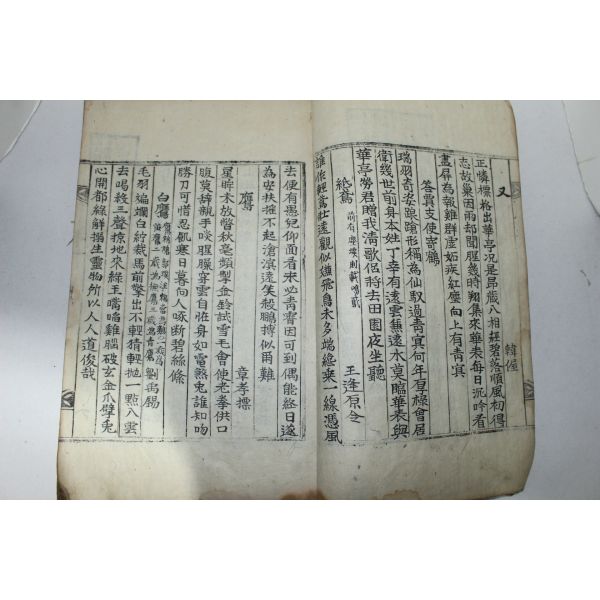 又 韓偓
正憐標格出華亭况是昂藏入相經碧落順風初得
志故巢因雨却聞腥幾時翔集來華表每日沉吟看
畫屏為報雞群虛妬疾紅塵向上有青冥
答賈支使寄鶴
瑞羽奇姿踉蹌形稱為仙馭過青冥何年厚祿會居
衛幾世前身本姓丁幸有遠雲兼遠水莫臨華表與
華亭勞君贈我清歌侶將去田園夜坐聽
紙鳶 王逢原令
誰作輕鳶壯遠觀似嫌飛鳥未多端纔乗一線憑風
去便有愚兒仰面看未必青霄因可到偶能終日遂
為安扶摇不起滄溟遠笑殺鵬摶似爾難
鷹 章孝標
星眸未放瞥秋毫頻掣金鈴試雪毛會使老拳供口
腹莫辞親手啖腥臊穿雲自怪身如電煞兎誰知吻
勝刀可惜忍飢寒日暮向人啄斷碧絲絛
白鷹 劉禹錫
毛羽斒斕白紵裁馬前擎出不輕猜輕抛一㸃入雲
去喝殺三聲掠地來緑玉觜嶊雞腦破玄金爪擘兎
心開都緣解搦生靈物所以人人道俊哉